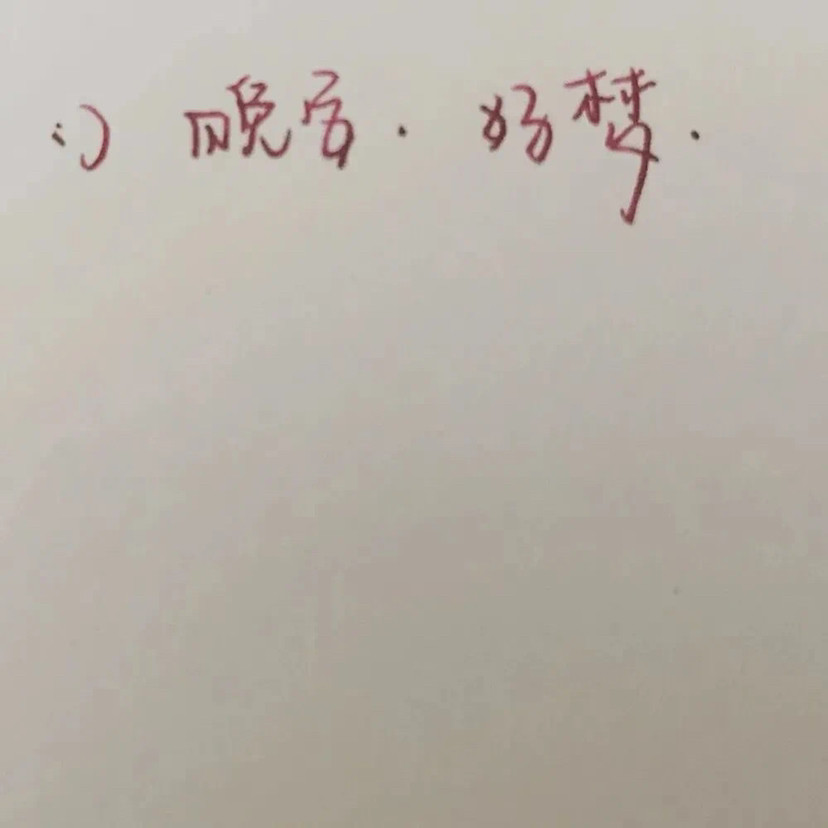 :) 晚安. 好梦.